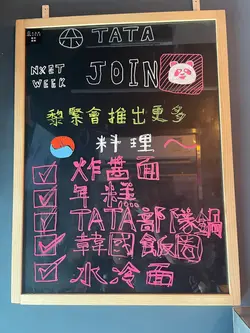 TATA
NXET
WEEK
JOIN
黎緊會推出更多
料理
炸醬面
年糕
TATA部隊鍋
韓國飯團
水冷面